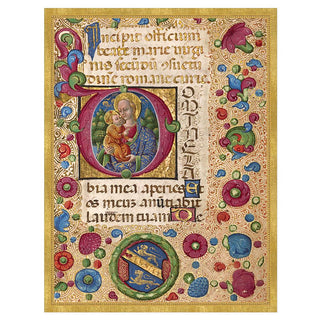 Incipit officium
beate marie virgi
nis secūdū ɔsuetu
dinē romane curie.
DOMINE LA
bia mea aperies Et
os meuz anūtiabit
laudem tuam